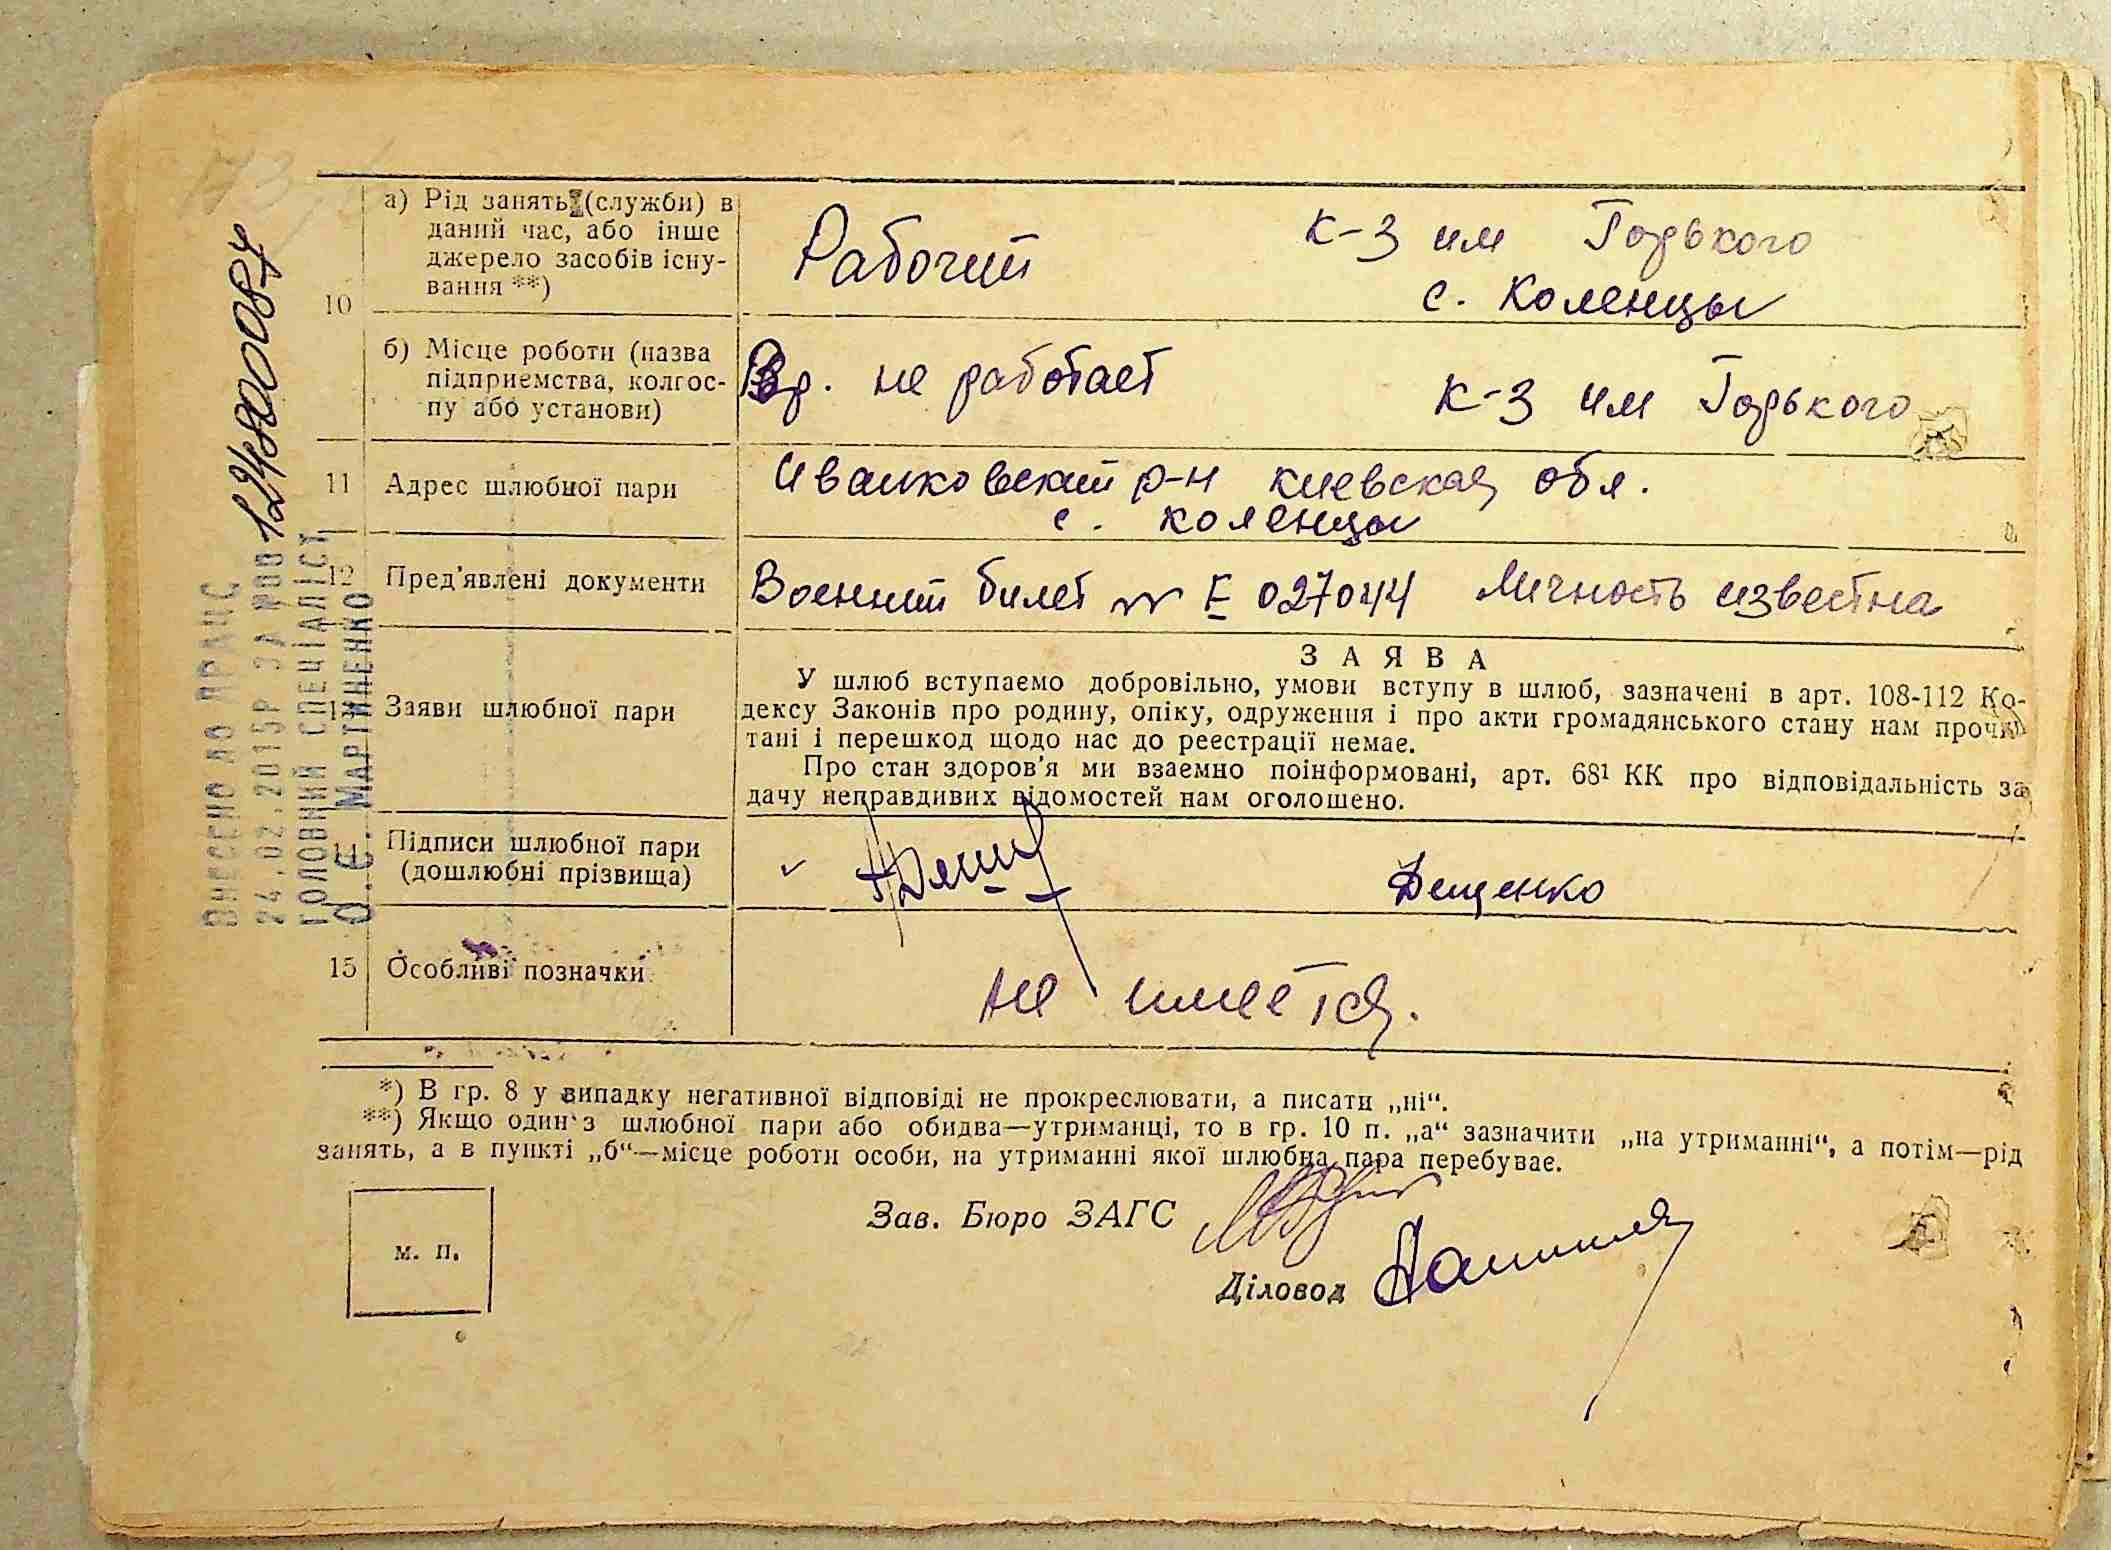 10
а) Рід занять (служби) в
даний час, або інше
джерело засобів існу-
вання **)
Рабочий
к-з им Горького
с. Коленцы
б) Місце роботи (назва
підприємства, колгос-
пу або установи)
Вр. не работает
к-з им Горького
11 Адрес шлюбної пари
Иванковский р-н киевская обл.
с. коленцы
12 Пред'явлені документи
Военный билет № Е 027044 Личность известна
Заяви шлюбної пари
ЗАЯВА
У шлюб вступаємо добровільно, умови вступу в шлюб, зазначені в арт. 108-112 Ко-
дексу Законів про родину, опіку, одруження і про акти громадянського стану нам прочи
тані і перешкод щодо нас до реєстрації немає.
Про стан здоров'я ми взаємно поінформовані, арт. 68¹ КК про відповідальність за
дачу неправдивих відомостей нам оголошено.
Підписи шлюбної пари
(дошлюбні прізвища)
Дещенко
15 Особливі позначки
не имеется.
*) В гр. 8 у випадку негативної відповіді не прокреслювати, а писати „ні“.
**) Якщо один з шлюбної пари або обидва—утриманці, то в гр. 10 п. „а“ зазначити „на утриманні“, а потім—рід
занять, а в пункті „б“—місце роботи особи, на утриманні якої шлюбна пара перебуває.
м. п.
Зав. Бюро ЗАГС
Діловод
ВНЕСЕНО ДО ДРАЦС
24.02.2015Р ЗА №00 124800084
ГОЛОВНИЙ СПЕЦІАЛІСТ
О.Є. МАРТИНЕНКО